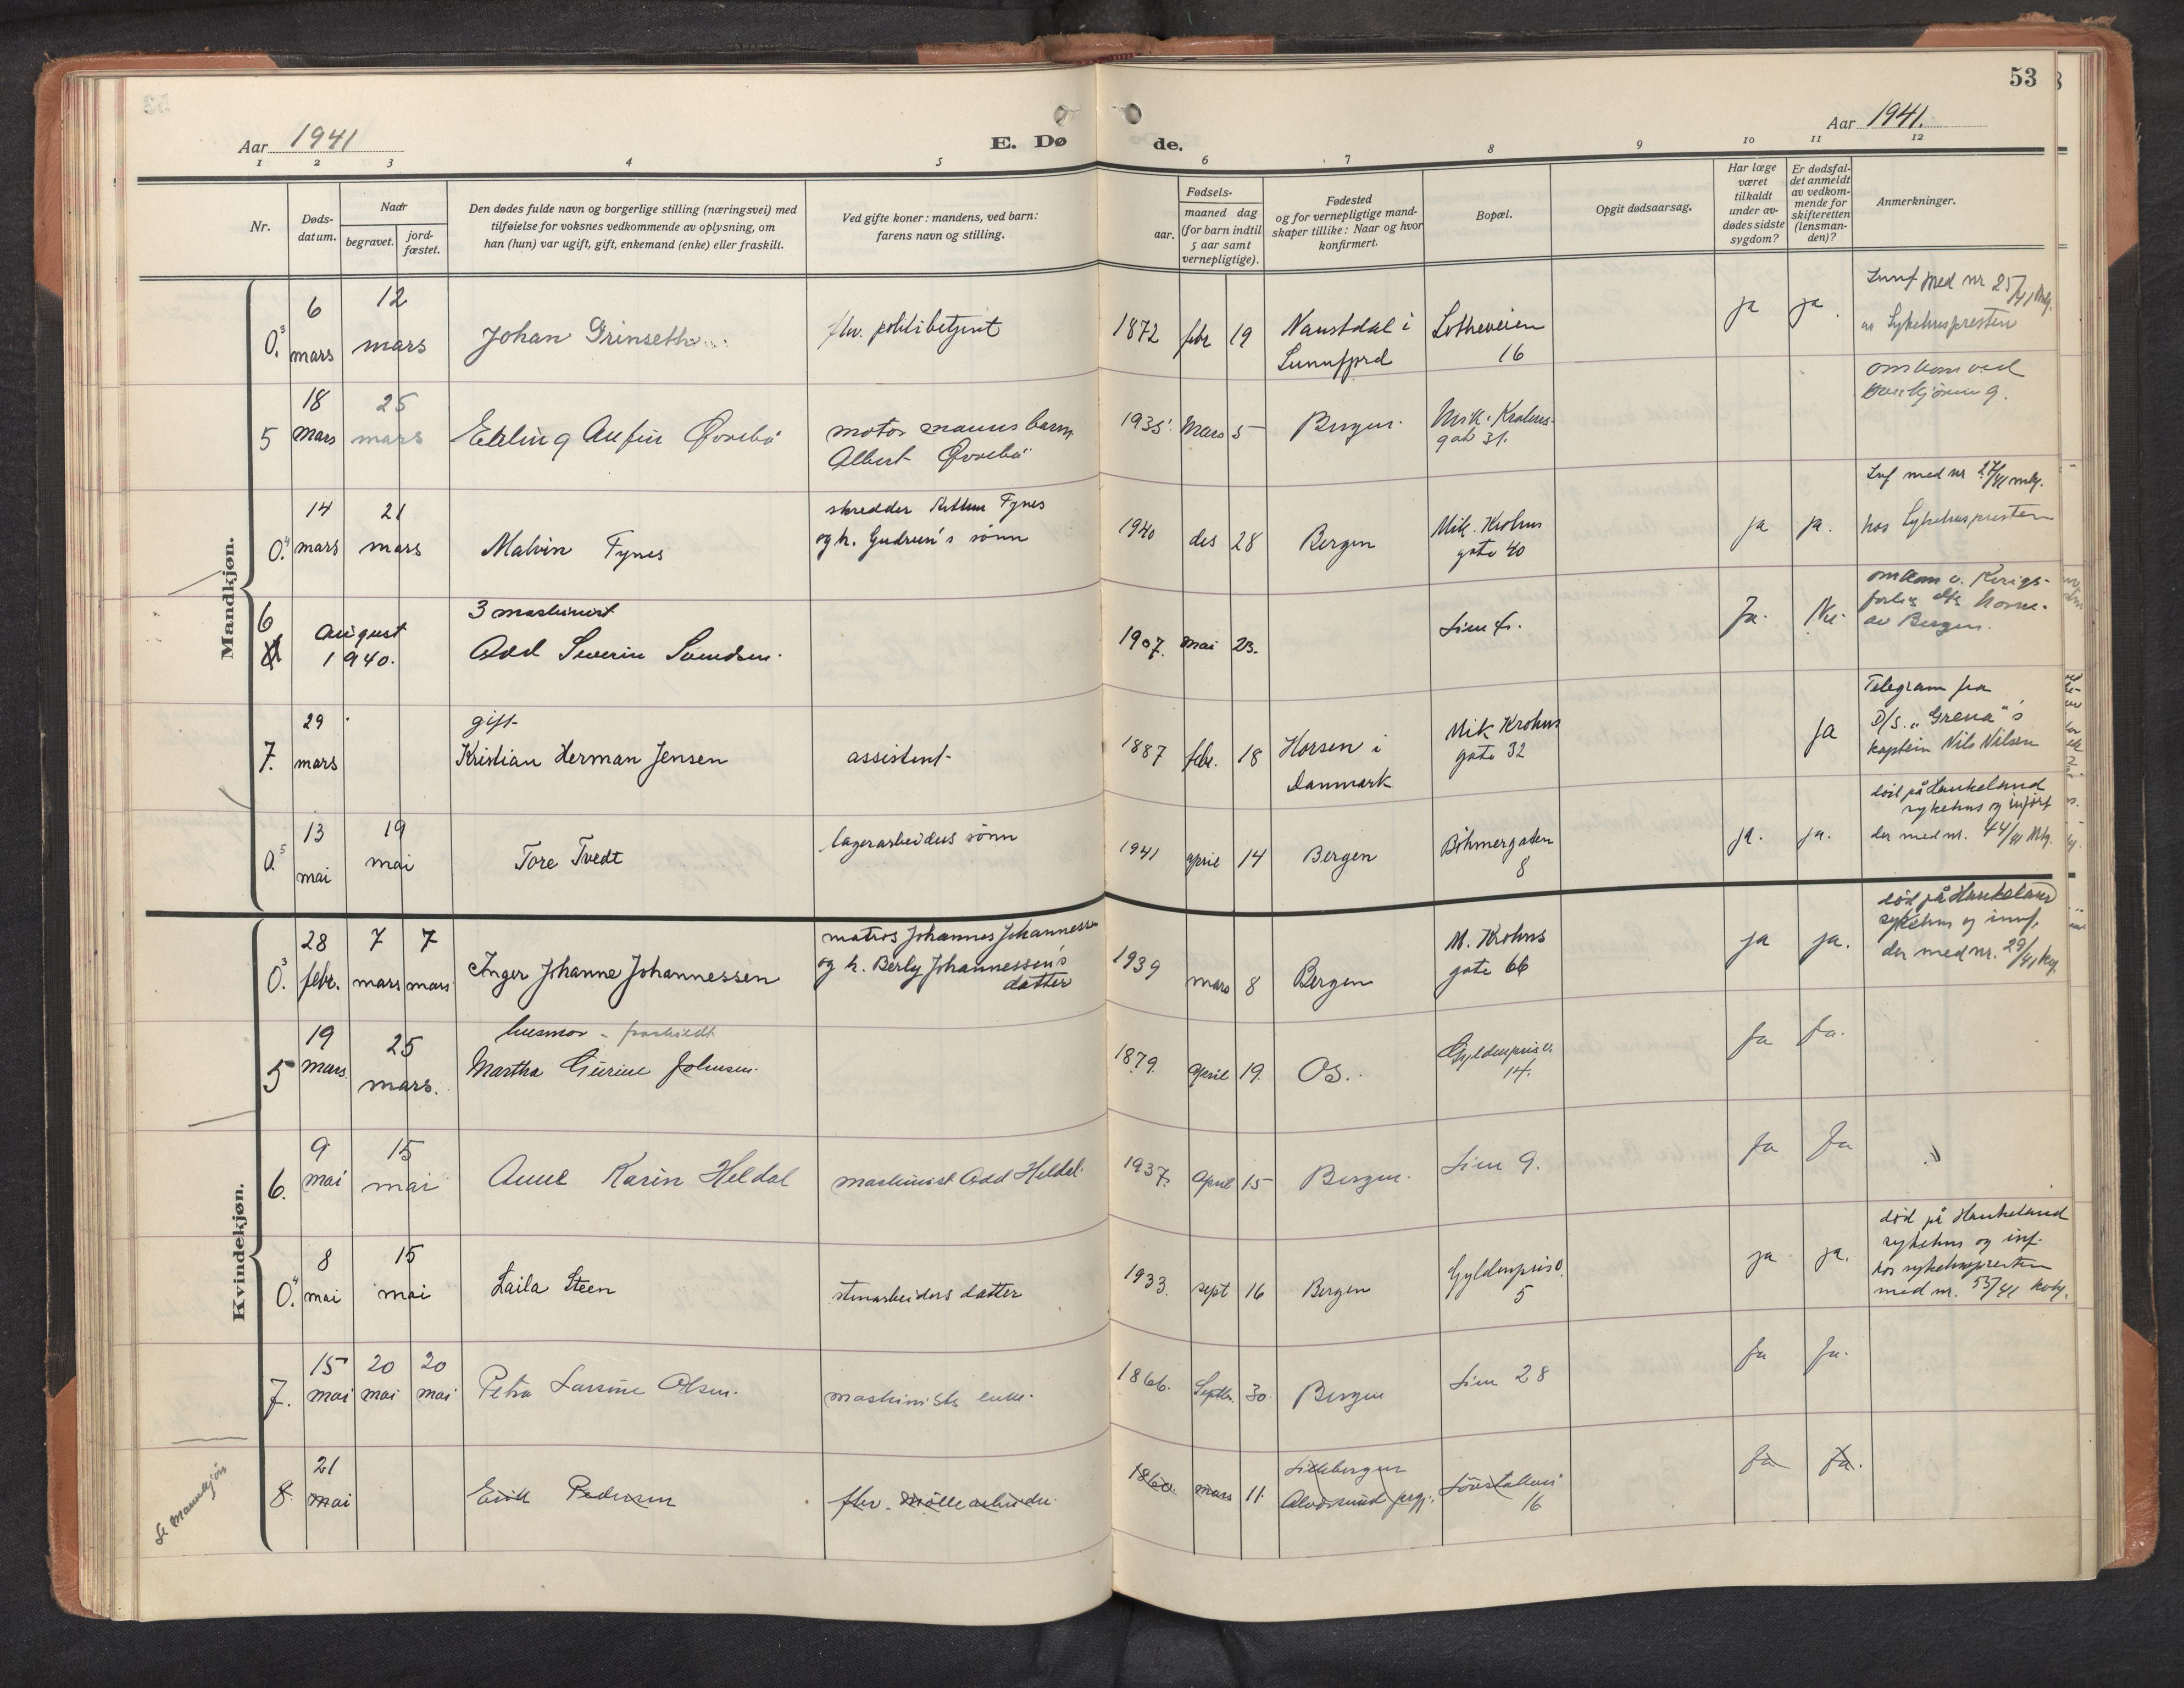 53
Aar 1941
E. Dø de.
Aar 1941.
1 2 3 4 5 6 7 8 9 10 11 12
Nr.
Døds-
datum.
Naar
begravet.
jord-
fæstet.
Den dødes fulde navn og borgerlige stilling (næringsvei) med
tilføielse for voksnes vedkommende av oplysning, om
han (hun) var ugift, gift, enkemand (enke) eller fraskilt.
Ved gifte koner: mandens, ved barn:
farens navn og stilling.
Fødsels-
aar.
maaned dag
(for barn indtil
5 aar samt
vernepligtige).
Fødested
og for vernepligtige mand-
skaper tillike: Naar og hvor
konfirmert.
Bopæl.
Opgit dødsaarsag.
Har læge
været
tilkaldt
under av-
dødes sidste
sygdom?
Er dødsfal-
det anmeldt
av vedkom-
mende for
skifteretten
(lensman-
den)?
Anmerkninger.
Mandkjøn.
0.3
6
mars
12
mars
Johan Grinseth
fhv. politibetjent
1872 febr 19
Naustdal i
Sunnfjord
Lotheveien
16
ja ja.
Innf med nr 25/41 Mkj.
av Sykehuspresten
5
18
mars
25
mars
Erling Anfin Øvrebö
motormanns barn
Albert Øvrebö
1935. Mars 5
Bergen.
Mik. Krohns-
gate 31.
omkom ved
0.4
14
mars
21
mars
Malvin Fynes
skredder Arthur Fynes
og h. Gudrun's sönn
1940 des 28
Bergen
Mik. Krohns
gate 40
ja ja.
Inf med nr 27/41 mkj.
hos Sykehuspresten
6
August
1940.
3 maskinist
Odd Severin Svendsen.
1907. Mai 23.
Lien 4.
Ja. Nei.
omkom v. Krigs-
av Bergen.
7.
29
mars
gift
Kristian Herman Jensen
assistent
1887 febr. 18
Horsen i
Danmark
Mik Krohns
gate 32
ja
Telegram fra
D/S. „Grena"s
kaptein Nils Nilsen
0.5
13
mai
19
mai
Tore Tvedt
lagerarbeiders sönn
1941 april 14
Bergen
Böhmergaten
8
ja. ja.
död på Haukeland
sykehus og infört
der med nr. 44/41 Mkj.
Kvindekjøn.
0.3
28
febr.
7
mars
7
mars
Inger Johanne Johannessen
matros Johannes Johannessen
og h. Berly Johannessen's
datter
1939 mars 8
Bergen
M. Krohns
gate 66
ja ja.
död på Haukeland
sykehus og innf.
der med nr. 29/41 Kkj.
5
19
mars.
25
mars.
husmor - fraskildt
Martha Gurine Johnsen.
1879. April 19.
Os.
Gyldenprisv.
14.
Ja Ja.
6.
9
mai
15
mai
Anne Karin Heldal
maskinist Odd Heldal.
1937. April 15
Bergen.
Lien 9.
Ja Ja
0.4
8
mai
15
mai
Laila Steen
stenarbeiders datter
1933. sept 16
Bergen
Gyldenprisv.
5
ja ja.
död på Haukeland
sykehus og inf.
hos sykehuspresten
med nr. 53/41 kvkj.
7.
15
mai
20
mai
20
mai
Petra Larsine Olsen.
maskinists enke.
1866. Septbr. 30
Bergen
Lien 28
Ja Ja.
Se Mannkjön
8.
21
mai
Erik Pedersen
fhv. Möllearbeider.
1860. mars 11.
Lillebergen
Alversund prgj.
Lövstakkvei
16
Ja Ja.